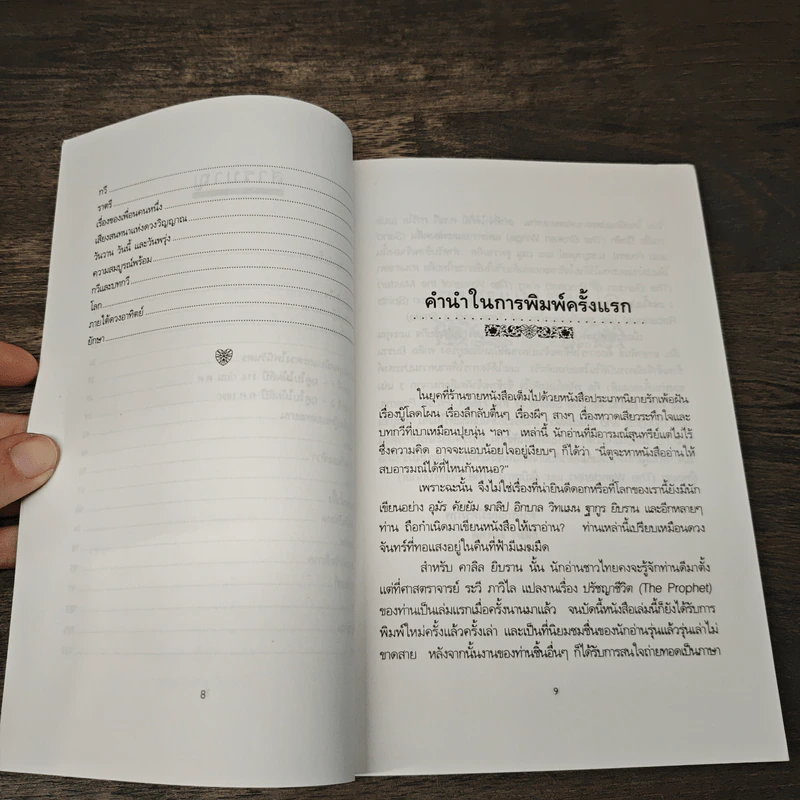 กวี
ราตรี
เรื่องของเพื่อนคนหนึ่ง
เสียงสนทนาแห่งดวงวิญญาณ
วันวาน วันนี้ และวันพรุ่ง
ความสมบูรณ์พร้อม
กวีและบทกวี
โลก
ภายใต้ดวงอาทิตย์
ยักษา
8
คำนำในการพิมพ์ครั้งแรก
ในยุคที่ร้านขายหนังสือเต็มไปด้วยหนังสือประเภทนิยายรักเพ้อฝัน
เรื่องบู๊โลดโผน เรื่องลึกลับตื้นๆ เรื่องผีๆ สางๆ เรื่องหวาดเสียวระทึกใจและ
บทกวีที่เบาเหมือนปุยนุ่น ฯลฯ เหล่านี้ นักอ่านที่มีอารมณ์สุนทรีย์แต่ไม่ไร้
ซึ่งความคิด อาจจะแอบน้อยใจอยู่เงียบๆ ก็ได้ว่า "นี่ตูจะหาหนังสืออ่านให้
สบอารมณ์ได้ที่ไหนกันหนอ?"
เพราะฉะนั้น จึงไม่ใช่เรื่องที่น่ายินดีดอกหรือที่โลกของเรานี้ยังมีนัก
เขียนอย่าง อุมัร คัยยัม ฆาลิป อิกบาล วิทแมน ฐากูร ยิบราน และอีกหลายๆ
ท่าน ถือกำเนิดมาเขียนหนังสือให้เราอ่าน? ท่านเหล่านี้เปรียบเหมือนดวง
จันทร์ที่ทอแสงอยู่ในคืนที่ฟ้ามีเมฆมืด
สำหรับ คาลิล ยิบราน นั้น นักอ่านชาวไทยคงจะรู้จักท่านดีมาตั้ง
แต่ที่ศาสตราจารย์ ระวี ภาวิไล แปลงานเรื่อง ปรัชญาชีวิต (The Prophet)
ของท่านเป็นเล่มแรกเมื่อครั้งนานมาแล้ว จนบัดนี้หนังสือเล่มนี้ก็ยังได้รับการ
พิมพ์ใหม่ครั้งแล้วครั้งเล่า และเป็นที่นิยมชมชื่นของนักอ่านรุ่นแล้วรุ่นเล่าไม่
ขาดสาย หลังจากนั้นงานของท่านชิ้นอื่นๆ ก็ได้รับการสนใจถ่ายทอดเป็นภาษา
9